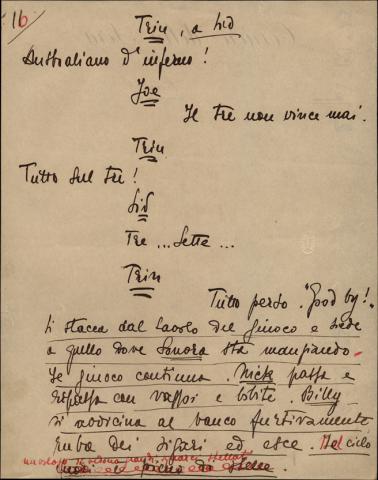 16
Trin, a Sid
Australiano d'inferno!
Joe
Il tre non vince mai.
Trin
Tutto sul tre!
Sid
Tre... Sette...
Trin
Tutto perso. "Good by!".
Si stacca dal tavolo del giuoco e siede
a quello dove Sonora sta mangiando.
Il giuoco continua. Nick passa e
ripassa con vassoi e bibite. Billy
si avvicina al banco furtivamente
ruba dei sigari ed esce. Nel cielo